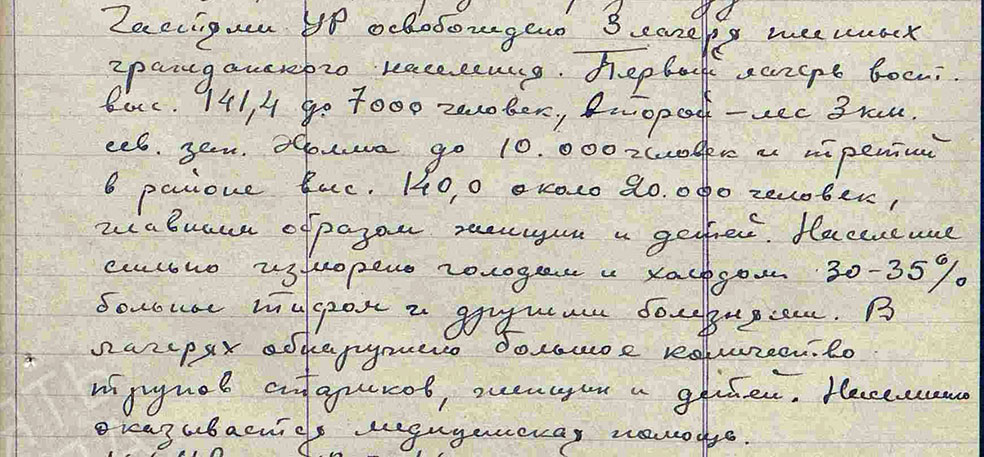 Частями УР освобождено 3 лагеря пленных
гражданского населения. Первый лагерь вост.
выс. 141,4 до 7000 человек, второй – лес 3 км.
сев. зап. Холма до 10.000 человек и третий
в районе выс. 140,0 около 20.000 человек,
главным образом женщин и детей. Население
сильно изморено голодом и холодом 30-35%
больные тифом и другими болезнями. В
лагерях обнаружено большое количество
трупов стариков, женщин и детей. Населению
оказывается медицинская помощь.